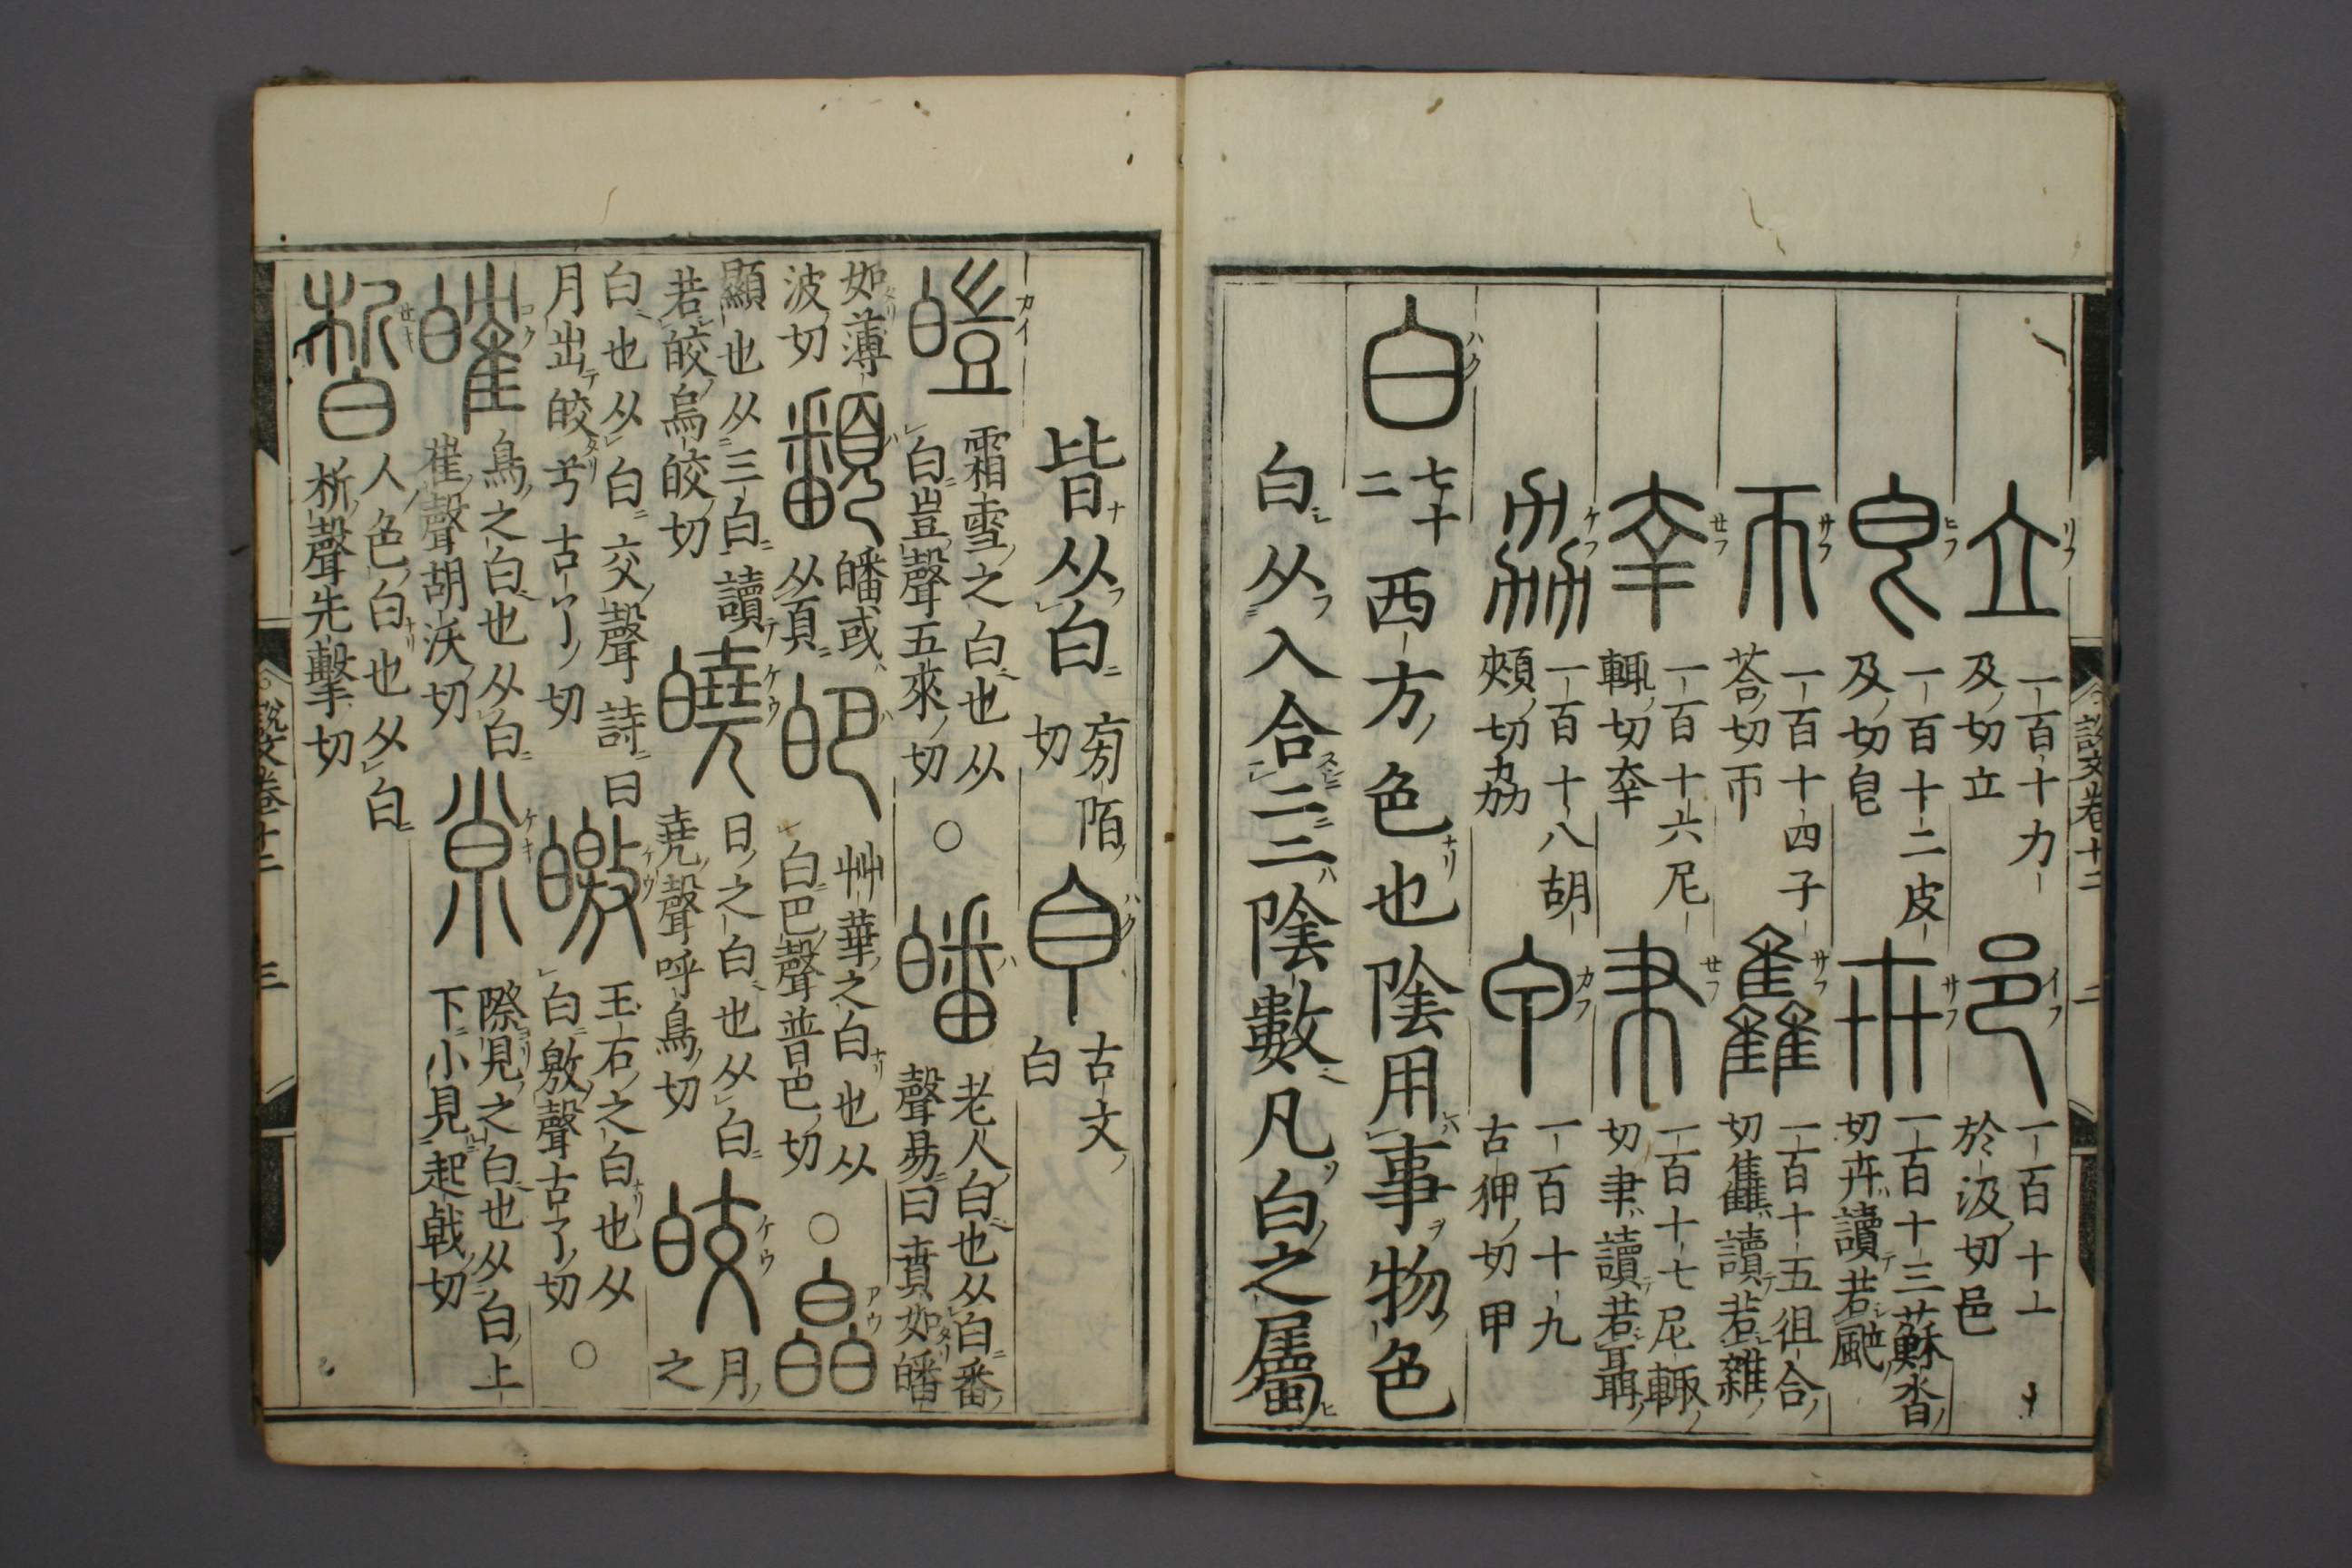 立 一百十 力及切 立 邑 一百十一 於汲切 邑
皀 一百十二 皮及切 皀 卅 一百十三 蘇沓切 卉讀若颯
帀 一百十四 子荅切 帀 雥 一百十五 徂合切 雥讀若雜
㚔 一百十六 尼輒切 㚔 聿 一百十七 尼輒切 聿讀若聶
劦 一百十八 胡頰切 劦 甲 一百十九 古狎切 甲
白 七十二 西方色也陰用事物色
白从入合二二陰數凡白之屬
說文卷十二 二
皆从白 㫄陌切 𦣺 古文白
皚 霜雪之白也从白豈聲五來切 ○ 皤 老人白也从白番聲易曰賁如皤
如薄波切 𩕏 皤或从頁 皅 艸華之白也从白巴聲普巴切 ○ 皛
顯也从三白讀若皎烏皎切 曉 日之白也从白堯聲呼鳥切 皎 月之
白也从白交聲詩曰月出皎兮古了切 皦 玉石之白也从白敫聲古了切 ○
㿥 鳥之白也从白隺聲胡沃切 𡭽 際見之白也从白上下小見起戟切
皙 人色白也从白析聲先擊切
說文卷十二 三